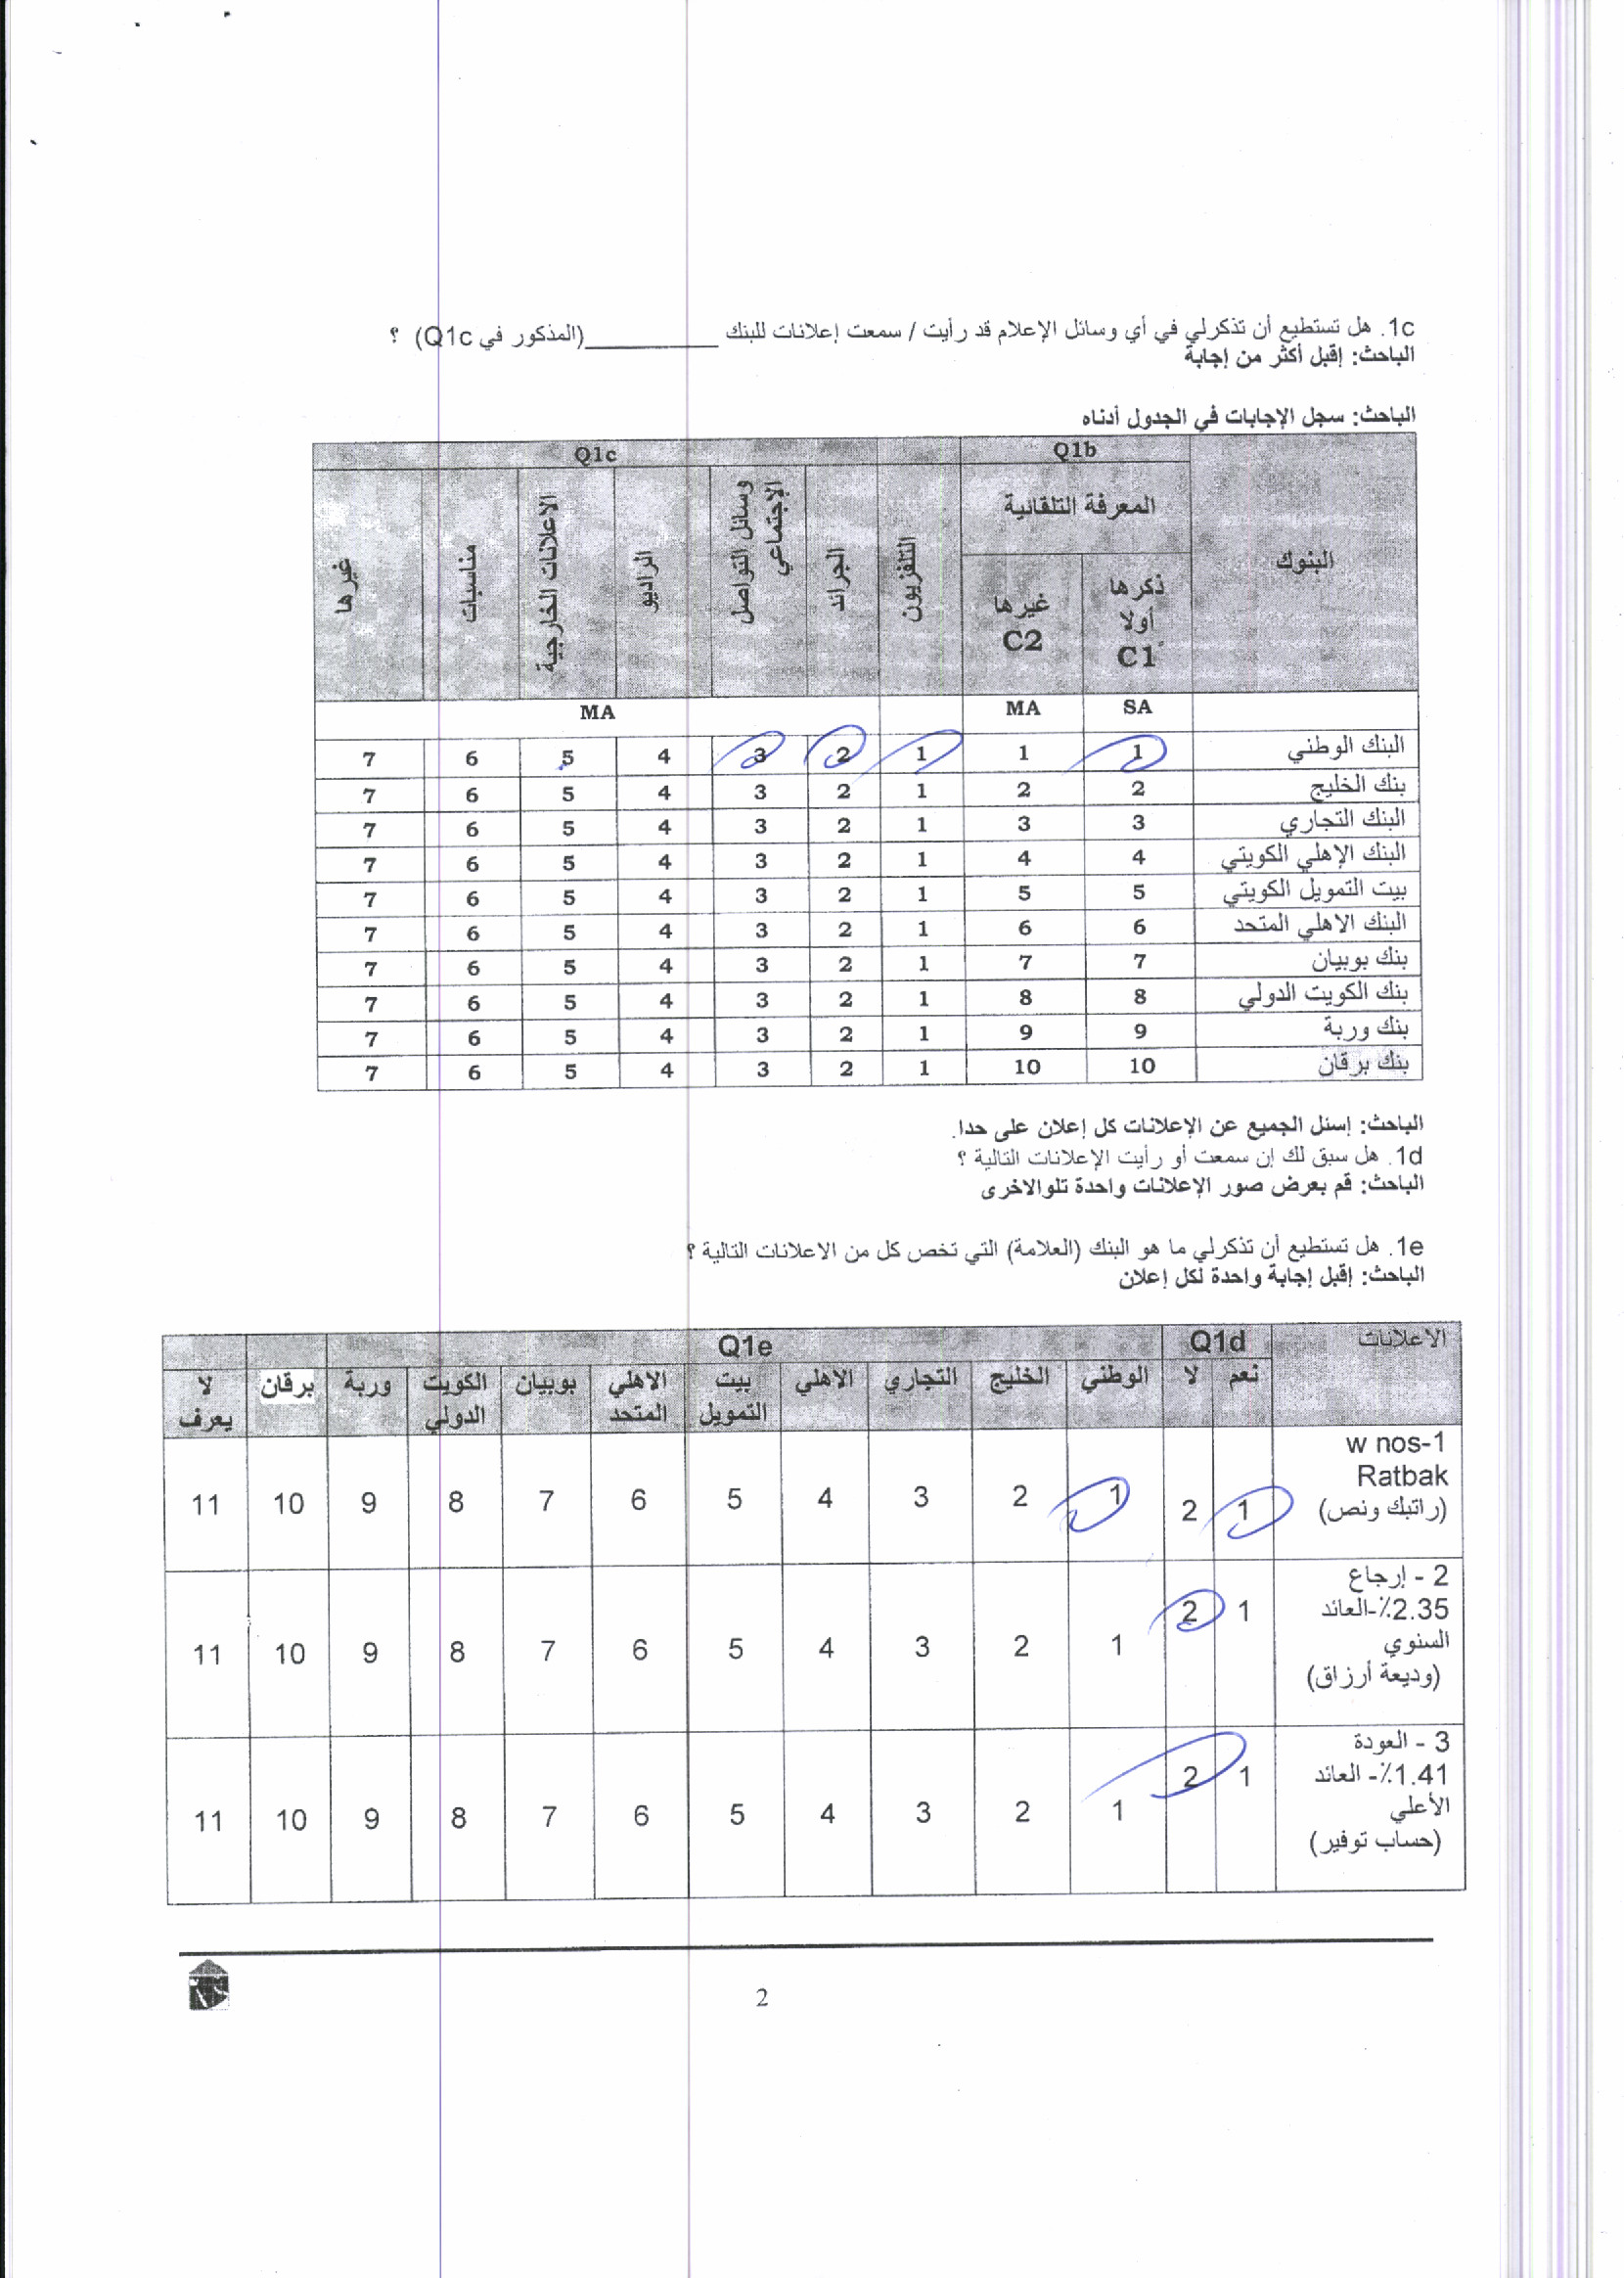 1c. هل تستطيع أن تذكرلي في أي وسائل الإعلام قد رأيت / سمعت إعلانات للبنك __________(المذكور في Q1c) ؟
الباحث: إقبل أكثر من إجابة
الباحث: سجل الإجابات في الجدول أدناه
البنوك Q1b Q1c
المعرفة التلقائية التلفزيون الجرائد وسائل التواصل الإجتماعي الراديو الاعلانات الخارجية مناسبات غيرها
ذكرها أولا C1 غيرها C2
SA MA MA
البنك الوطني 1 1 1 2 3 4 5 6 7
بنك الخليج 2 2 1 2 3 4 5 6 7
البنك التجاري 3 3 1 2 3 4 5 6 7
البنك الإهلي الكويتي 4 4 1 2 3 4 5 6 7
بيت التمويل الكويتي 5 5 1 2 3 4 5 6 7
البنك الاهلي المتحد 6 6 1 2 3 4 5 6 7
بنك بوبيان 7 7 1 2 3 4 5 6 7
بنك الكويت الدولي 8 8 1 2 3 4 5 6 7
بنك وربة 9 9 1 2 3 4 5 6 7
بنك برقان 10 10 1 2 3 4 5 6 7
الباحث: إسئل الجميع عن الإعلانات كل إعلان على حدا.
1d. هل سبق لك إن سمعت أو رأيت الإعلانات التالية ؟
الباحث: قم بعرض صور الإعلانات واحدة تلوالاخرى
1e. هل تستطيع أن تذكرلي ما هو البنك (العلامة) التي تخص كل من الاعلانات التالية ؟
الباحث: إقبل إجابة واحدة لكل إعلان
الاعلانات Q1d Q1e
نعم لا الوطني الخليج التجاري الاهلي بيت التمويل الاهلي المتحد بوبيان الكويت الدولي وربة برقان لا يعرف
w nos-1
Ratbak
(راتبك ونص) 1 2 1 2 3 4 5 6 7 8 9 10 11
2 - إرجاع
2.35٪-العائد
السنوي
(وديعة أرزاق) 1 2 1 2 3 4 5 6 7 8 9 10 11
3 - العودة
1.41٪- العائد
الأعلي
(حساب توفير) 1 2 1 2 3 4 5 6 7 8 9 10 11
2